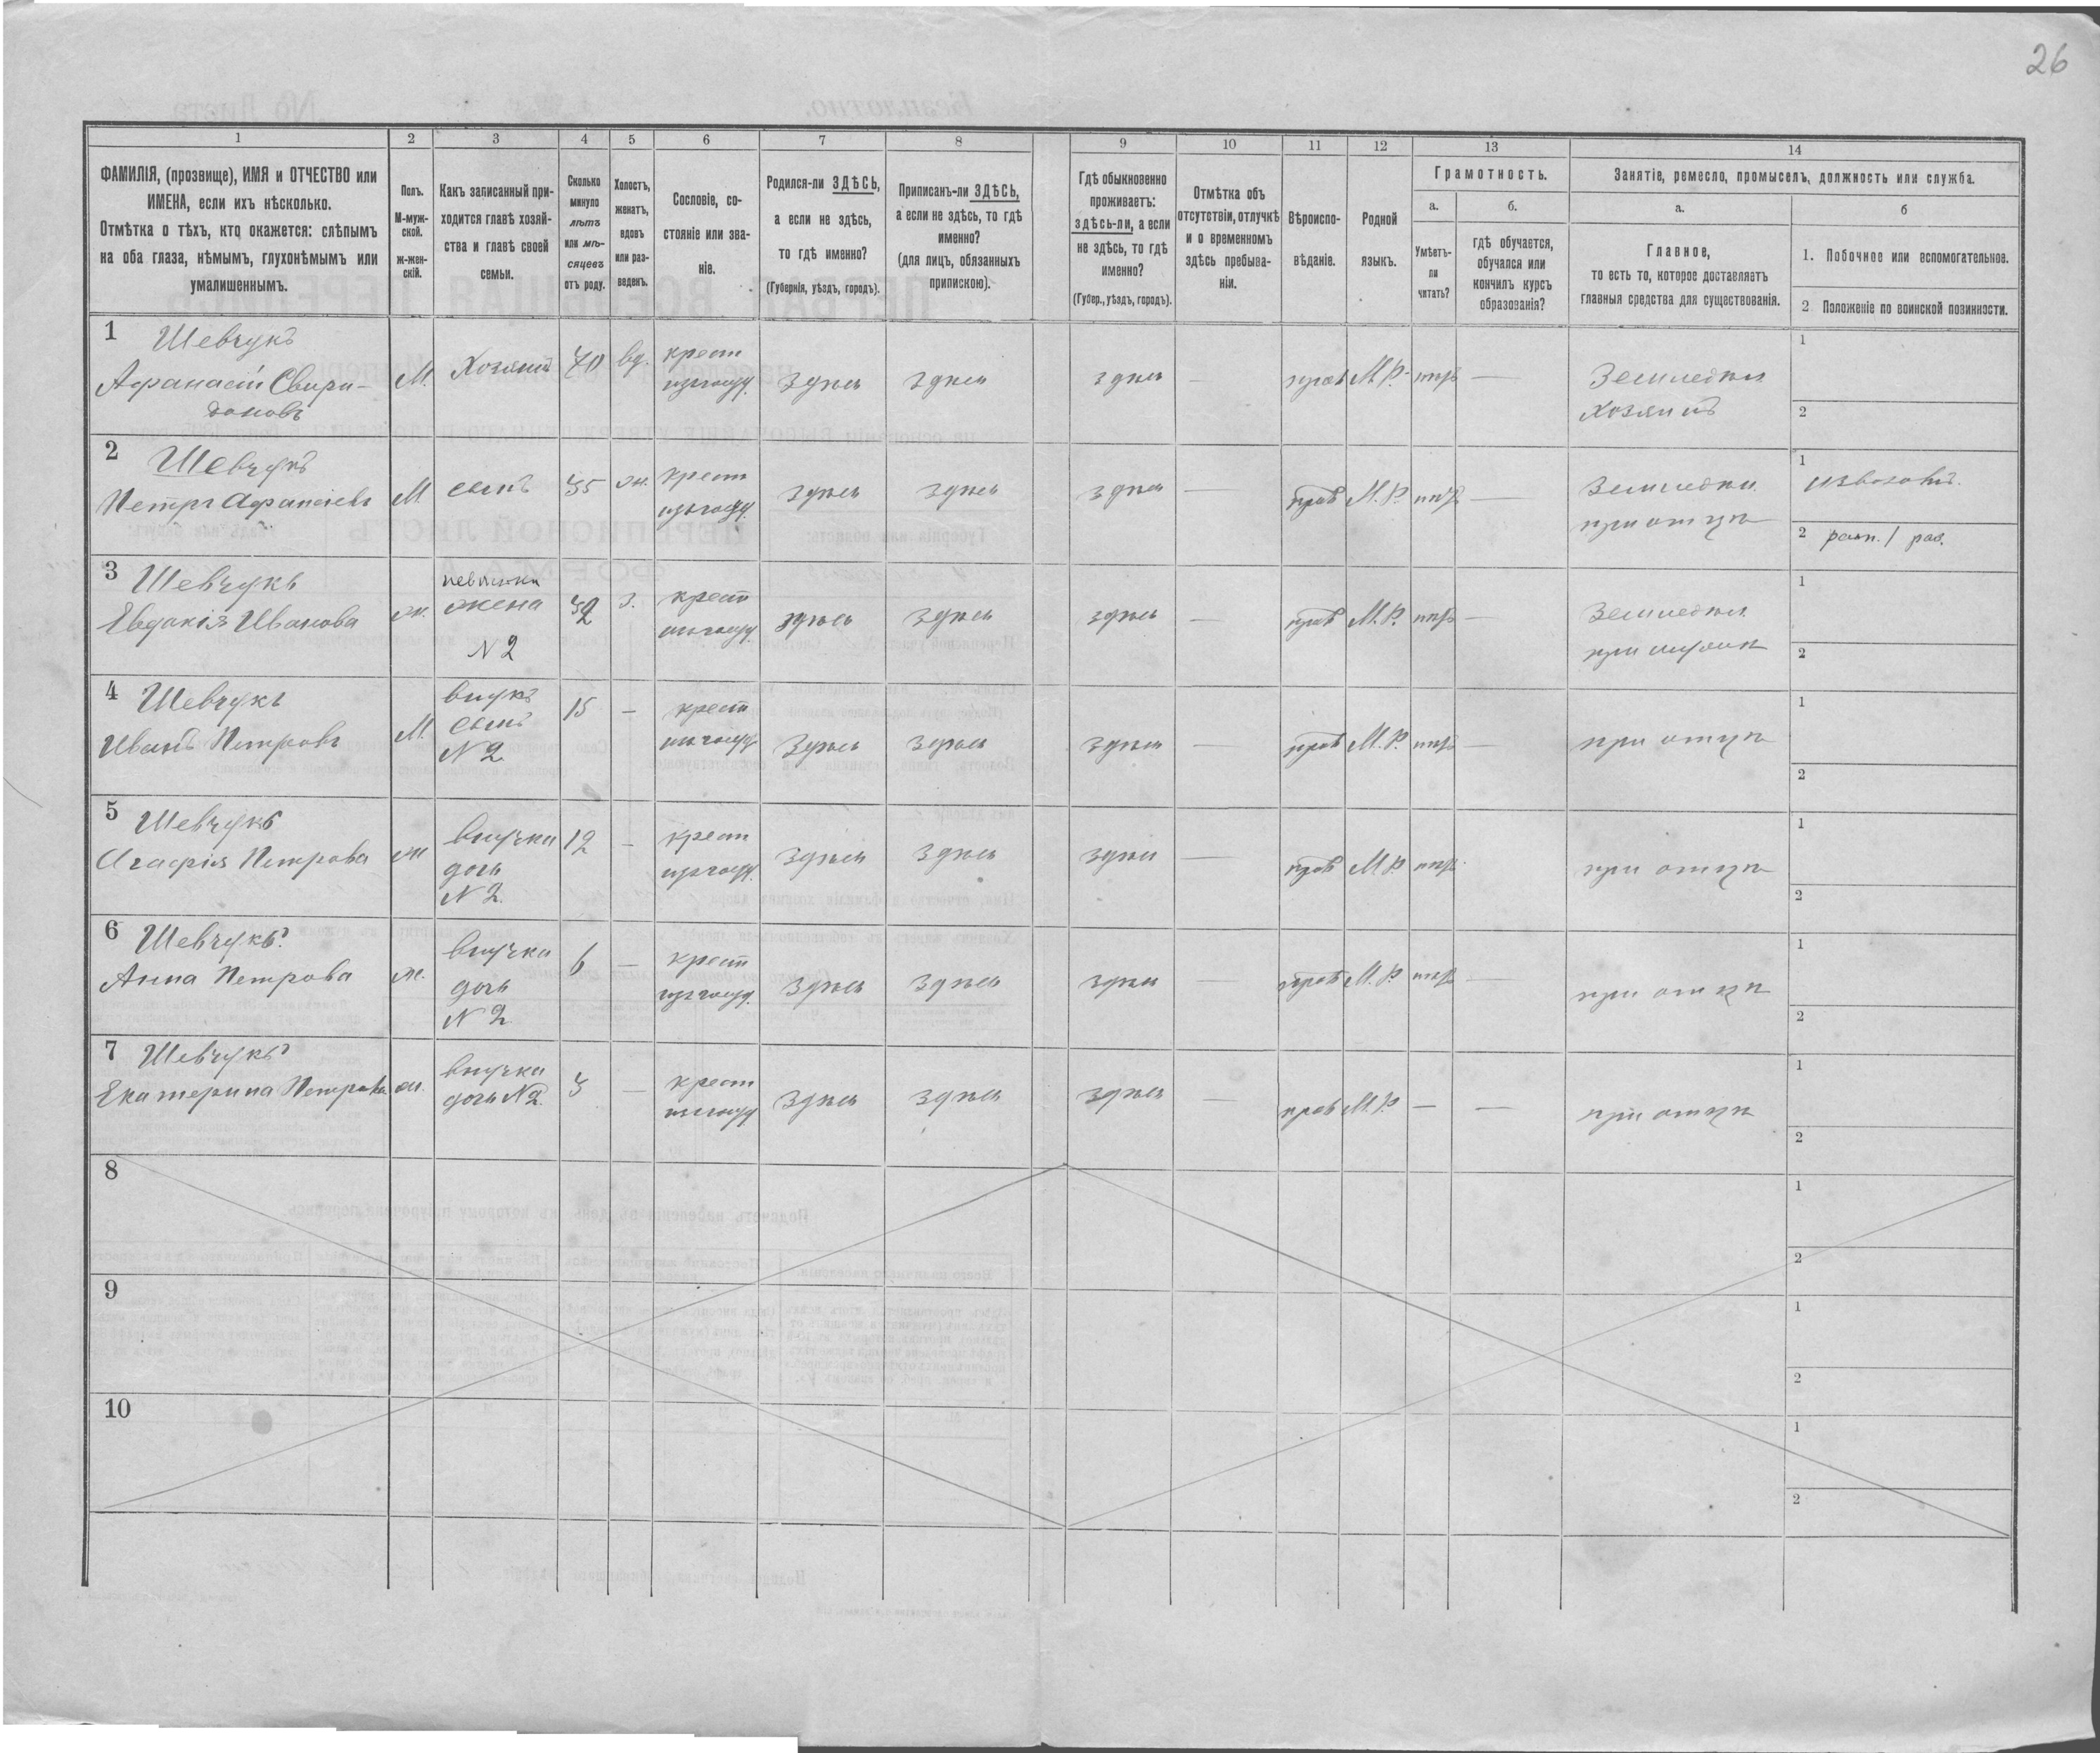 26
1
2
3
4
5
6
7
8
9
10
11
12
13
14
ФАМИЛІЯ, (прозвище), ИМЯ и ОТЧЕСТВО или
ИМЕНА, если ихъ нѣсколько.
Отмѣтка о тѣхъ, кто окажется: слѣпымъ
на оба глаза, нѣмымъ, глухонѣмымъ или
умалишеннымъ.
Полъ.
М-муж-
ской.
ж-жен-
скій.
Какъ записанный при-
ходится главѣ хозяй-
ства и главѣ своей
семьи.
Сколько
минуло
лѣтъ
или мѣ-
сяцевъ
отъ роду.
Холостъ,
женатъ,
вдовъ
или раз-
веденъ.
Сословіе, со-
стояніе или зва-
ніе.
Родился-ли ЗДѢСЬ,
а если не здѣсь,
то гдѣ именно?
(Губернія, уѣздъ, городъ).
Приписанъ-ли ЗДѢСЬ,
а если не здѣсь, то гдѣ
именно?
(для лицъ, обязанныхъ
припискою).
Гдѣ обыкновенно
проживаетъ:
здѣсь-ли, а если
не здѣсь, то гдѣ
именно?
(Губер., уѣздъ, городъ).
Отмѣтка объ
отсутствіи, отлучкѣ
и о временномъ
здѣсь пребыва-
ніи.
Вѣроиспо-
вѣданіе.
Родной
языкъ.
Грамотность.
а.
Умѣетъ-
ли
читать?
б.
гдѣ обучается,
обучался или
кончилъ курсъ
образованія?
Занятіе, ремесло, промыселъ, должность или служба.
а.
Главное,
то есть то, которое доставляетъ
главныя средства для существованія.
б
1. Побочное или вспомогательное.
2 Положеніе по воинской повинности.
1 Шевчукъ
Афанасій Свири-
доновъ
М. Хозяинъ 70 вд. крест здѣсь здѣсь здѣсь — прав М.Р. —
Земледѣл
хозяинъ
1
2
2 Шевчукъ
Петръ Афанасіевъ
М сынъ 35 ж. крест здѣсь здѣсь здѣсь — прав М.Р. —
Земледѣл
при отцѣ
1 извозомъ.
2
3 Шевчукъ
Евдокія Иванова
ж. невѣстка
жена
N 2
32 з. крест здѣсь здѣсь здѣсь — прав М.Р. —
Земледѣл
при мужѣ
1
2
4 Шевчукъ
Иванъ Петровъ
М. внукъ
сынъ
N 2
15 — крест здѣсь здѣсь здѣсь — прав М.Р. —
при отцѣ
1
2
5 Шевчукъ
Агафія Петрова
ж внучка
дочь
N 2.
12 — крест здѣсь здѣсь здѣсь — прав М.Р.
при отцѣ
1
2
6 Шевчукъ
Анна Петрова
ж. внучка
дочь
N 2
6 — крест здѣсь здѣсь здѣсь — прав М.Р. —
при отцѣ
1
2
7 Шевчукъ
Екатерина Петрова
ж. внучка
дочь N 2.
3 — крест здѣсь здѣсь здѣсь — прав М.Р. — —
при отцѣ
1
2
8
1
2
9
1
2
10
1
2